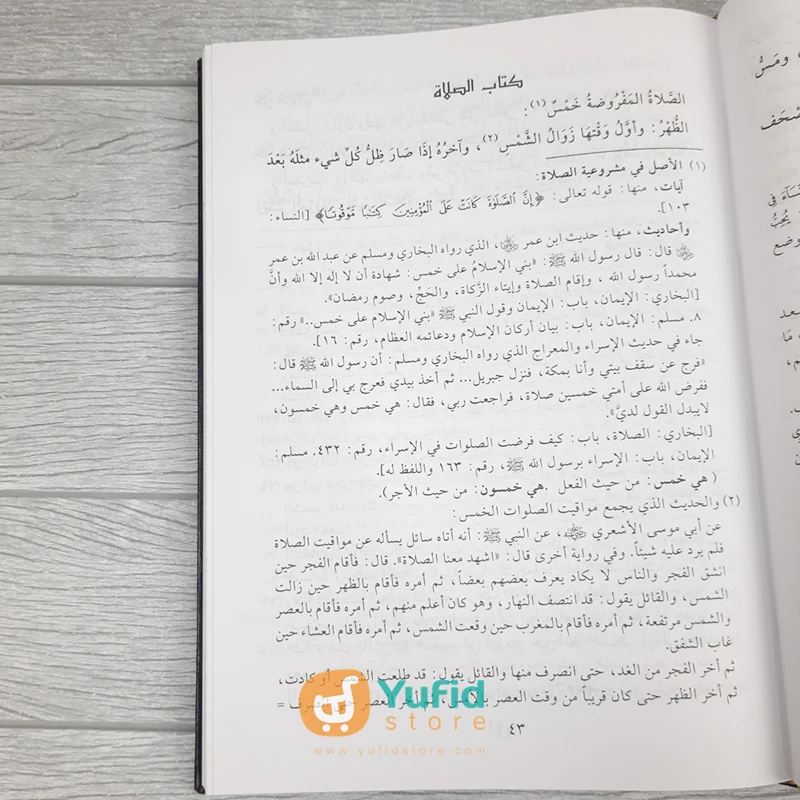 كتاب الصلاة
الصَّلاةُ المَفْرُوضةُ خَمْسٌ (١) :
الظُّهْرُ: وأوَّلُ وَقْتِهَا زَوَالُ الشَّمْسِ (٢)، وآخرُهُ إذَا صَارَ ظِلُّ كُلِّ شيء مثلَهُ بَعْدَ
(١) الأصل في مشروعية الصلاة:
آيات، منها: قوله تعالى: ﴿إِنَّ ٱلصَّلَوٰةَ كَانَتْ عَلَى ٱلْمُؤْمِنِينَ كِتَٰبًا مَّوْقُوتًا﴾ [النساء:
١٠٣].
وأحاديث، منها: حديث ابن عمر ﵁، الذي رواه البخاري ومسلم عن عبد الله بن عمر
﵁ قال: قال رسول الله ﷺ: «بني الإسلامُ على خمس: شهادة أن لا إله إلا الله وأنَّ
محمداً رسول الله، وإقام الصلاة وإيتاء الزَّكاة، والحَجِّ، وصوم رمضان».
[البخاري: الإيمان، باب: الإيمان وقول النبي ﷺ «بني الإسلام على خمس..» رقم:
٨. مسلم: الإيمان، باب: بيان أركان الإسلام ودعائمه العظام، رقم: ١٦].
جاء في حديث الإسراء والمعراج الذي رواه البخاري ومسلم: أن رسول الله ﷺ قال:
«فرج عن سقف بيتي وأنا بمكة، فنزل جبريل... ثم أخذ بيدي فعرج بي إلى السماء...
ففرض الله على أمتي خمسين صلاة، فراجعت ربي، فقال: هي خمس وهي خمسون،
لايبدل القول لديَّ».
[البخاري: الصلاة، باب: كيف فرضت الصلوات في الإسراء، رقم: ٤٣٢. مسلم:
الإيمان، باب: الإسراء برسول الله ﷺ، رقم: ١٦٣ واللفظ له].
( هي خمس: من حيث الفعل .هي خمسون: من حيث الأجر).
(٢) والحديث الذي يجمع مواقيت الصلوات الخمس:
عن أبي موسى الأشعري ﵁، عن النبي ﷺ: أنه أتاه سائل يسأله عن مواقيت الصلاة
فلم يرد عليه شيئاً. وفي رواية أخرى قال: «اشهد معنا الصلاة». قال: فأقام الفجر حين
انشق الفجر والناس لا يكاد يعرف بعضهم بعضاً، ثم أمره فأقام بالظهر حين زالت
الشمس، والقائل يقول: قد انتصف النهار، وهو كان أعلم منهم، ثم أمره فأقام بالعصر
والشمس مرتفعة، ثم أمره فأقام بالمغرب حين وقعت الشمس، ثم أمره فأقام العشاء حين
غاب الشفق.
ثم أخر الفجر من الغد، حتى انصرف منها والقائل يقول: قد طلعت الشمس أو كادت،
ثم أخر الظهر حتى كان قريباً من وقت العصر بالأمس، ثم أخر العصر حتى انصرف =
٤٣
Yufid
store
www.yufidstore.com